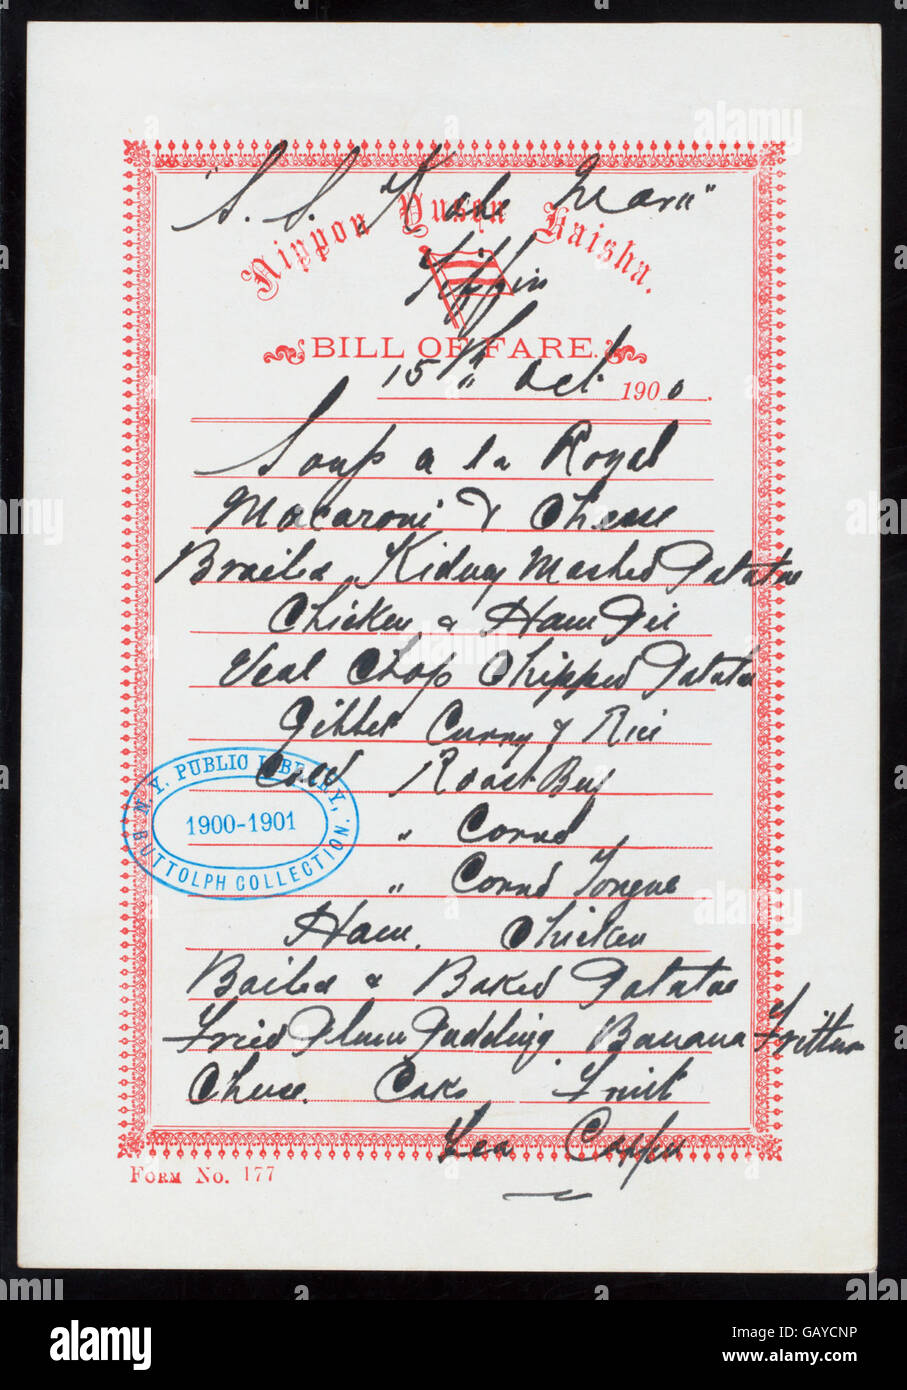 "S. S. Kobe Maru"
Nippon Yusen Kaisha.
Tiffin
BILL OF FARE.
15th Oct. 1900.
Soup a la Royal
Macaroni & Cheese
Broiled Kidney Mashed Potatoe
Chicken & Ham Pie
Veal Chop Chipped Potatoe
Gibblet Curry & Rice
Cold Roast Beef
" Corned
" Corned Tongue
Ham. Chicken
Boiled & Baked Potatoe
Fried Plum Pudding Banana Fritters
Cheese. Cake Fruit
Tea Coffee
N. Y. PUBLIC LIBRARY,
1900-1901
BUTTOLPH COLLECTION.
FORM NO. 177
alamy
alamy
alamy
alamy
Image ID: GAYCNP
www.alamy.com